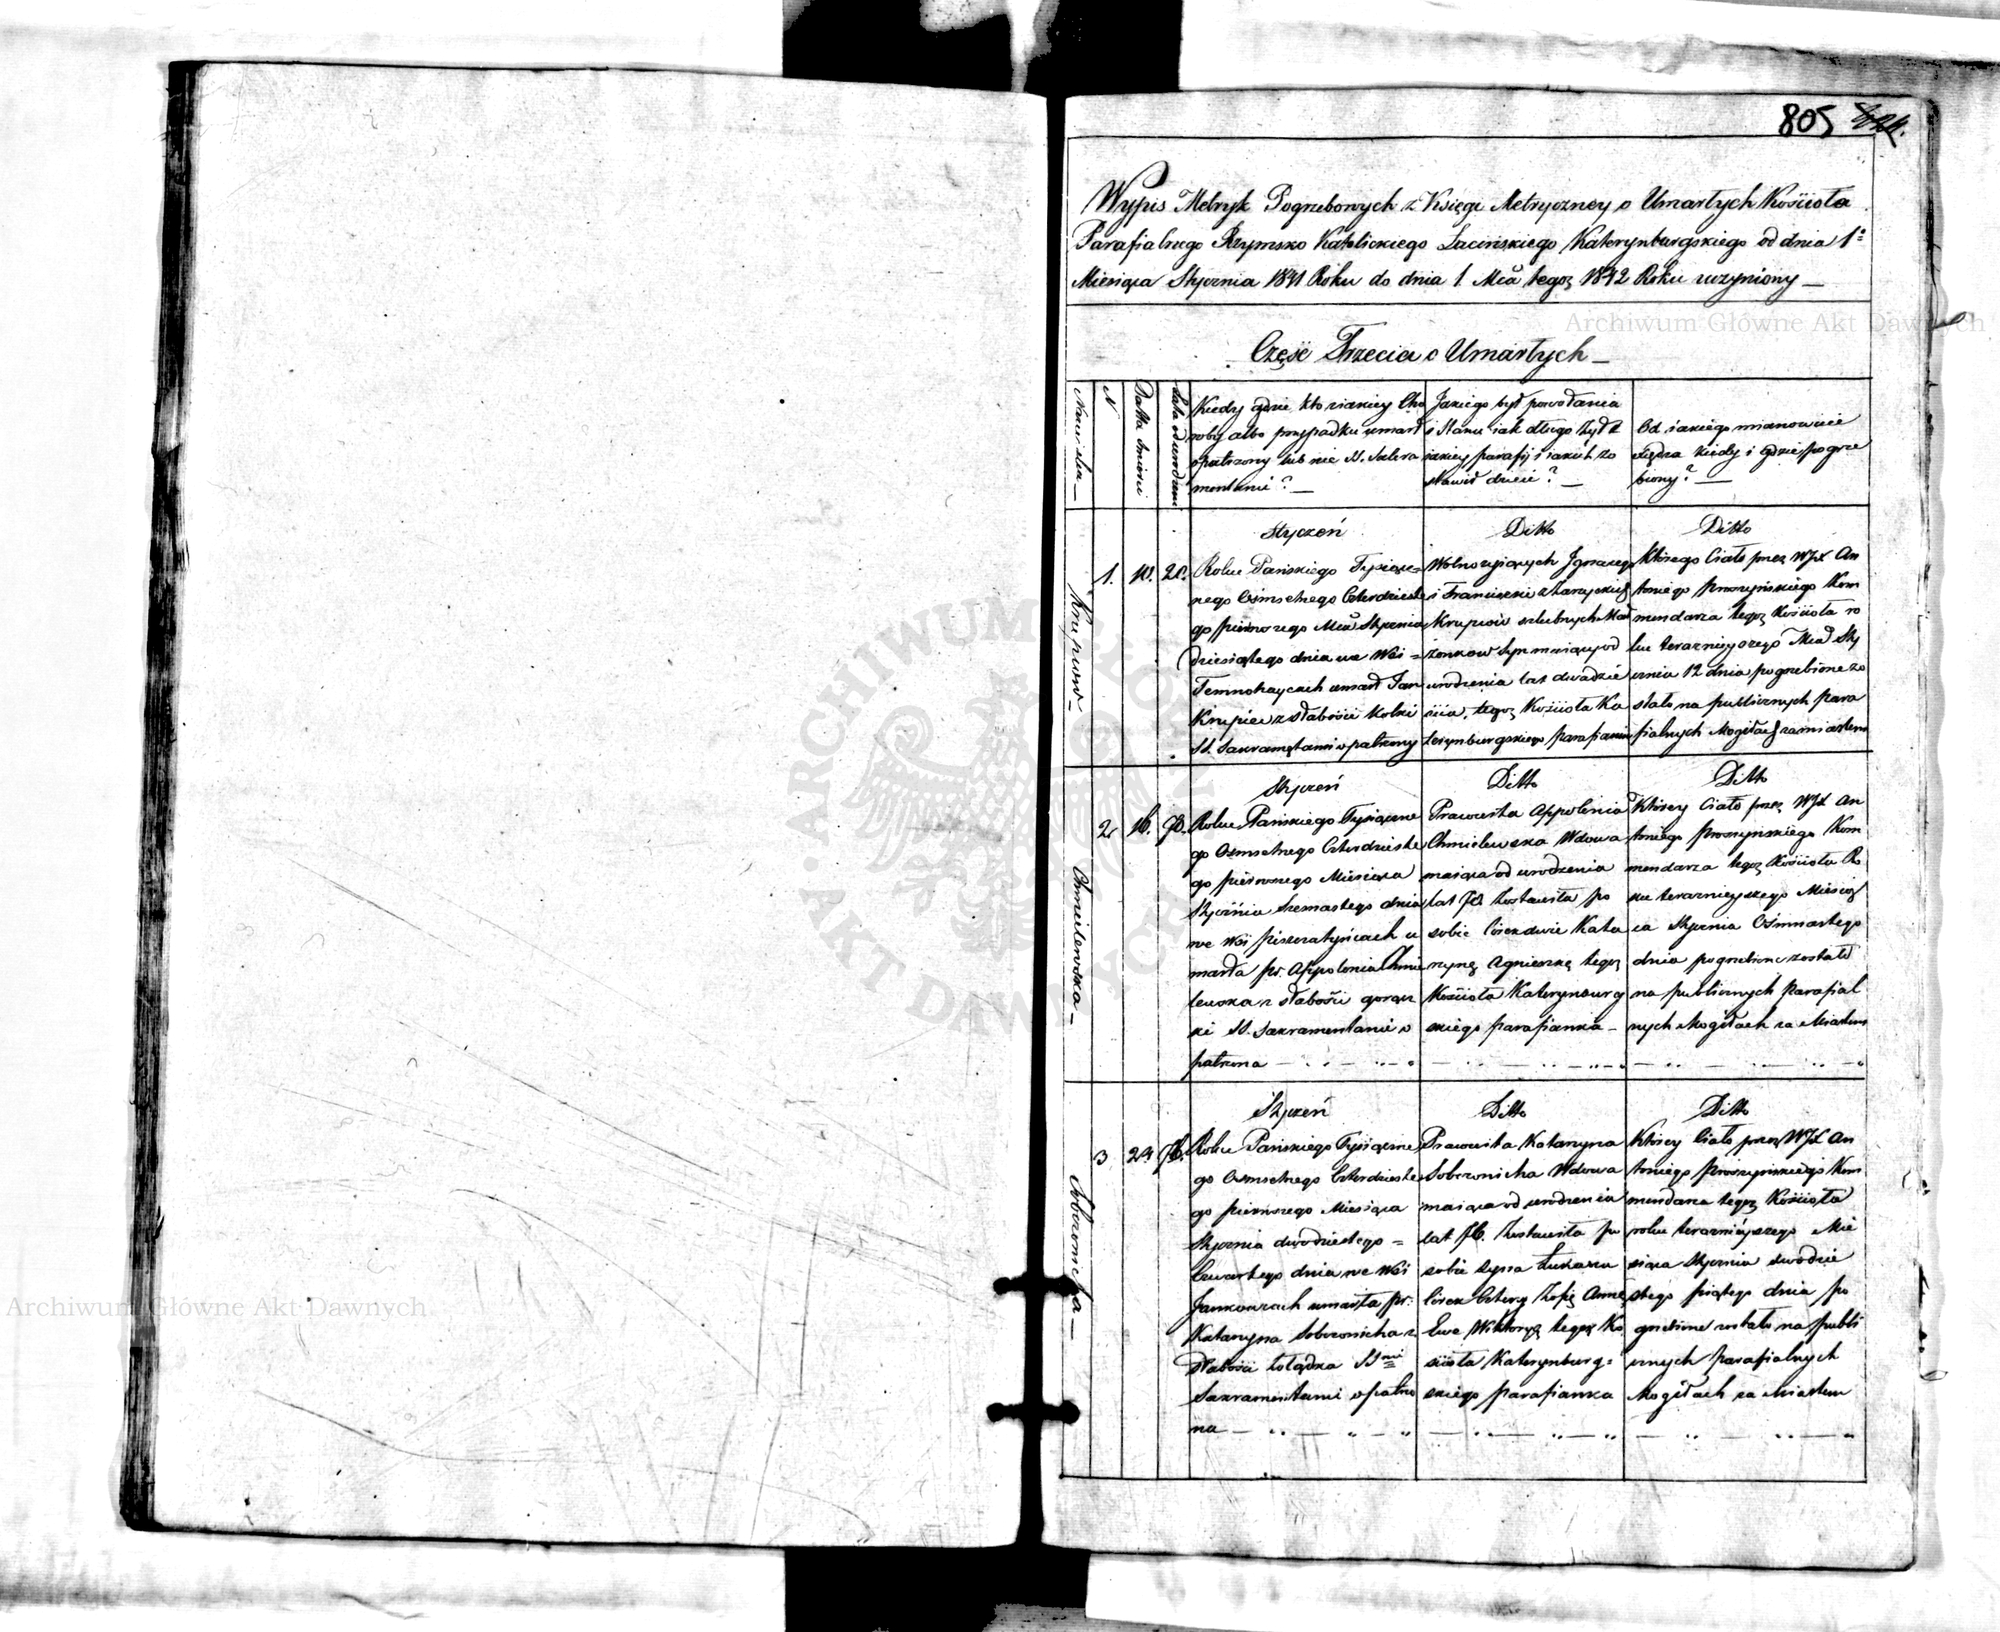 805
Wypis Metryk Pogrzebowych z Księgi Metryczney o Umarłych Kościoła
Parafialnego Rzymsko Katolickiego Łacińskiego Katerynburgskiego od dnia 1º
Miesiąca Stycznia 1841 Roku do dnia 1 Mca tegoż 1842 Roku uczyniony —
Część Trzecia o Umarłych —
Nazwiska —
N
Datta śmierci
Lata od urodzenia
Kiedy gdzie, kto z iakiey Cho
roby albo przypadku umarł
opatrzony lub nie SS. Sakra
mentami? —
Jakiego był powołania
i Stanu iak długo żył z
iakiey parafij i iakich zo
stawił dzieci? —
Od iakiego mianowicie
Xiędza kiedy i gdzie pogrze
biony? —
Krupiów —
1.
10.
20.
Styczeń
Roku Pańskiego Tysiącz=
nego Osmsetnego Czterdzieste
go pierwszego Mca Stycznia
dziesiątego dnia we Wsi =
Temnohaycach umarł Jan
Krupiec z słabości kolki
SS. Sakramentami opatrzony
Ditto
Wolnozyiących Ignacego
i Franciszki z
Krupiów szlubnych Mał
żonków Syn maiący od
urodzenia lat dwadzie
ścia, tegoż Kościoła Ka
terynburgskiego parafianin
Ditto
Którego Ciało przez WJX An
toniego Proszyńskiego Kom
mendarza tegoż Kościoła ro
ku teraznieyszego Mca Sty
cznia 12 dnia pogrzebione zo
stało na publicznych para
fialnych Mogiłach za miastem
Chmielewska —
2
16.
70.
Styczeń
Roku Pańskiego Tysiączne
go Osmsetnego Czterdzieste
go pierwszego Miesiąca
Stycznia Szesnastego dnia
we Wsi Piszczatyńcach u
marła pr. Appolonia Chmie
lewska z słabości gorącz
ki SS. Sakramentami o
patrzona
Ditto
Pracowita Appolonia
Chmielewska Wdowa
maiąca od urodzenia
lat 70 Zostawiła po
sobie Córek dwie Kata
rzynę Agnieszkę tegoż
Kościoła Katerynburg
skiego parafianka —
Ditto
Którey Ciało przez WJX An
toniego Proszyńskiego Kom
mendarza tegoż Kościoła Ro
ku teraznieyszego Miesią
ca Stycznia Ośmnastego
dnia pogrzebione zostało
na publicznych parafial
nych Mogiłach za Miastem
Sobczonicha —
3
24
76.
Styczeń
Roku Pańskiego Tysiączne
go Osmsetnego Czterdzieste
go pierwszego Miesiąca
Stycznia dwodziestego =
Czwartego dnia we Wsi
Jankowcach umarła pr.
Katarzyna Sobczonicha z
Słabości żołądka SSmi
Sakramentami opatrzo
na
Ditto
Pracowita Katarzyna
Sobczonicha Wdowa
maiąca od urodzenia
lat 76. Zostawiła po
sobie syna Łukasza
Córek Cztery Zofię Annę
Ewe Wiktoryę tegoż Ko
ścioła Katerynburg=
skiego parafianka
Ditto
Którey Ciało przez WJX An
toniego Proszyńskiego Kom
mendarza tegoż Kościoła
roku teraznieyszego Mie
siąca Stycznia dwodzie
stego piątego dnia po
grzebione zostało na publi
cznych parafialnych
Mogiłach za Miastem
Archiwum Główne Akt Dawnych
Archiwum Główne Akt Dawnych
ARCHIWUM GŁÓWNE AKT DAWNYCH